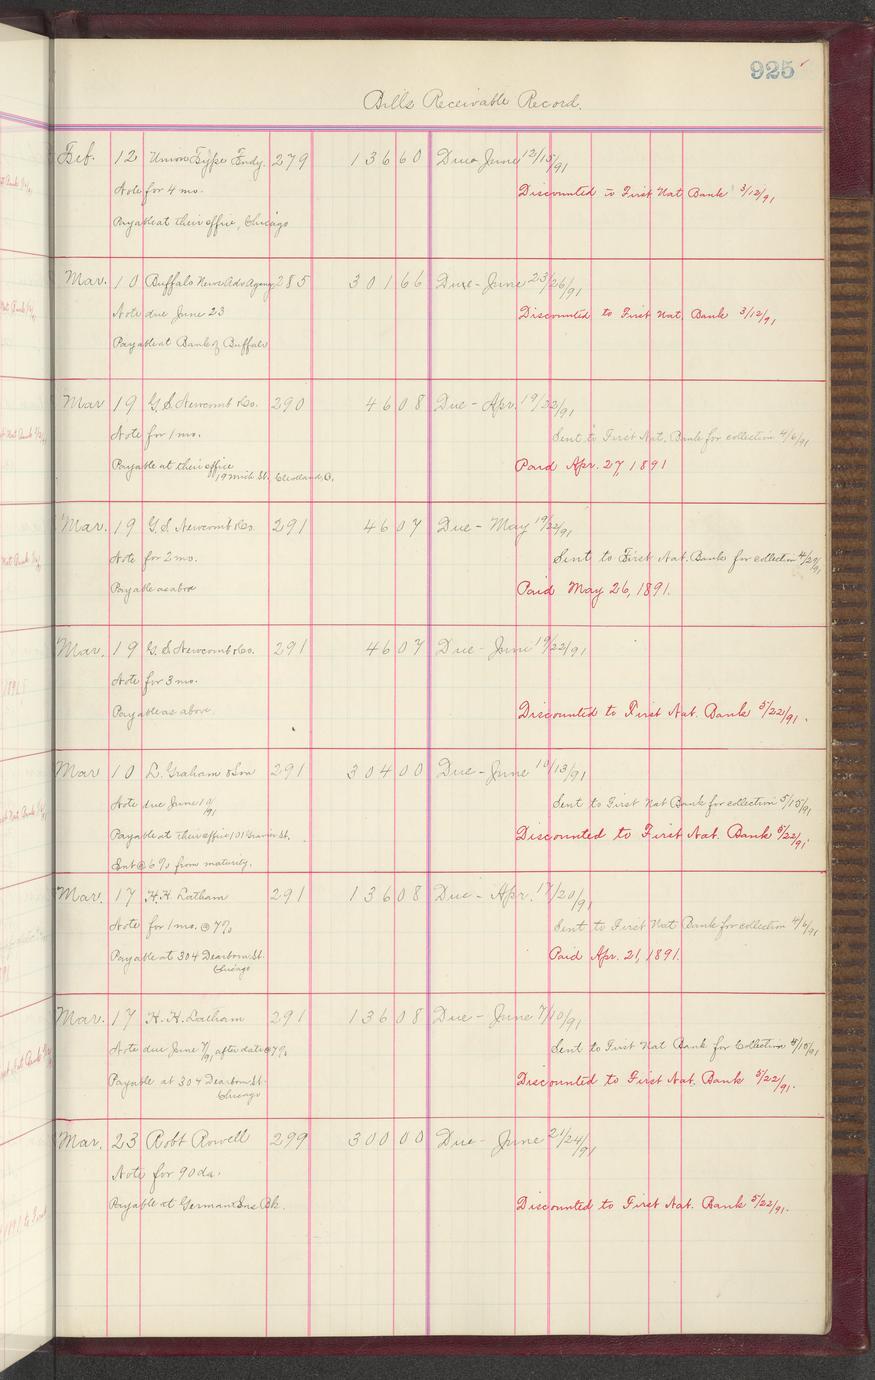 925
Bills Receivable Record.
Feb. 12 Union Type Fndy. 279 136 60 Due June 12/15/91
Note for 4 mo. Discounted to First Nat. Bank 3/12/91
Payable at their office, Chicago
Mar. 10 Buffalo News Adv Agency 285 301 66 Due - June 23/26/91
Note due June 23 Discounted to First Nat. Bank 3/12/91
Payable at Bank of Buffalo
Mar 19 G. S. Newcomb & Co. 290 46 08 Due - Apr. 19/22/91
Note for 1 mo. Sent to First Nat. Bank for collection 4/6/91
Payable at their office Paid Apr. 27, 1891
19 Mich St. Cleveland, O.
Mar. 19 G. S. Newcomb & Co. 291 46 07 Due - May 19/22/91
Note for 2 mo. Sent to First Nat. Bank for collection
Payable as above Paid May 26, 1891.
Mar. 19 G. S. Newcomb & Co. 291 46 07 Due - June 19/22/91
Note for 3 mo.
Payable as above. Discounted to First Nat. Bank 5/22/91.
Mar 10 L. Graham & Son 291 304 00 Due - June 10/13/91
Note due June 10/91 Sent to First Nat Bank for collection 5/15/91
Payable at their office 101 Gravier St. Discounted to First Nat. Bank 5/22/91.
Int @ 6% from maturity.
Mar. 17 H. H. Latham 291 136 08 Due - Apr. 17/20/91
Note for 1 mo. @ 7% Sent to First Nat Bank for collection 4/6/91
Payable at 304 Dearborn St. Paid Apr. 21, 1891.
Chicago
Mar. 17 H. H. Latham 291 136 08 Due - June 7/10/91
Note due June 7/91, after date @ 7% Sent to First Nat Bank for Collection 5/15/91
Payable at 304 Dearborn St. Discounted to First Nat. Bank 5/22/91.
Chicago
Mar. 23 Robt Rowett 299 300 00 Due - June 21/24/91
Note for 90 da.
Payable at German Ins Bk. Discounted to First Nat. Bank 5/22/91.